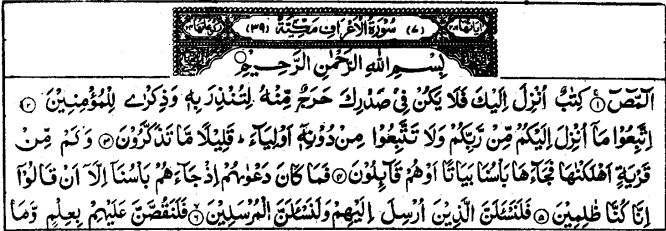 اٰیاتها ۲۰۶ (۷) سُوْرَةُ الْاَعْرَافِ مَكِّيَّةٌ (۳۹) رکوعاتها ۲۴
بِسْمِ اللّٰهِ الرَّحْمٰنِ الرَّحِيْمِ
الٓمّٓصٓ ۱ كِتٰبٌ اُنْزِلَ اِلَيْكَ فَلَا يَكُنْ فِيْ صَدْرِكَ حَرَجٌ مِّنْهُ لِتُنْذِرَ بِهٖ وَذِكْرٰى لِلْمُؤْمِنِيْنَ ۲
اِتَّبِعُوْا مَآ اُنْزِلَ اِلَيْكُمْ مِّنْ رَّبِّكُمْ وَلَا تَتَّبِعُوْا مِنْ دُوْنِهٖٓ اَوْلِيَآءَ ؕ قَلِيْلًا مَّا تَذَكَّرُوْنَ ۳ وَكَمْ مِّنْ
قَرْيَةٍ اَهْلَكْنٰهَا فَجَآءَهَا بَاْسُنَا بَيَاتًا اَوْ هُمْ قَآئِلُوْنَ ۴ فَمَا كَانَ دَعْوٰىهُمْ اِذْ جَآءَهُمْ بَاْسُنَآ اِلَّآ اَنْ قَالُوْٓا
اِنَّا كُنَّا ظٰلِمِيْنَ ۵ فَلَنَسْئَلَنَّ الَّذِيْنَ اُرْسِلَ اِلَيْهِمْ وَلَنَسْئَلَنَّ الْمُرْسَلِيْنَ ۶ فَلَنَقُصَّنَّ عَلَيْهِمْ بِعِلْمٍ وَّمَا